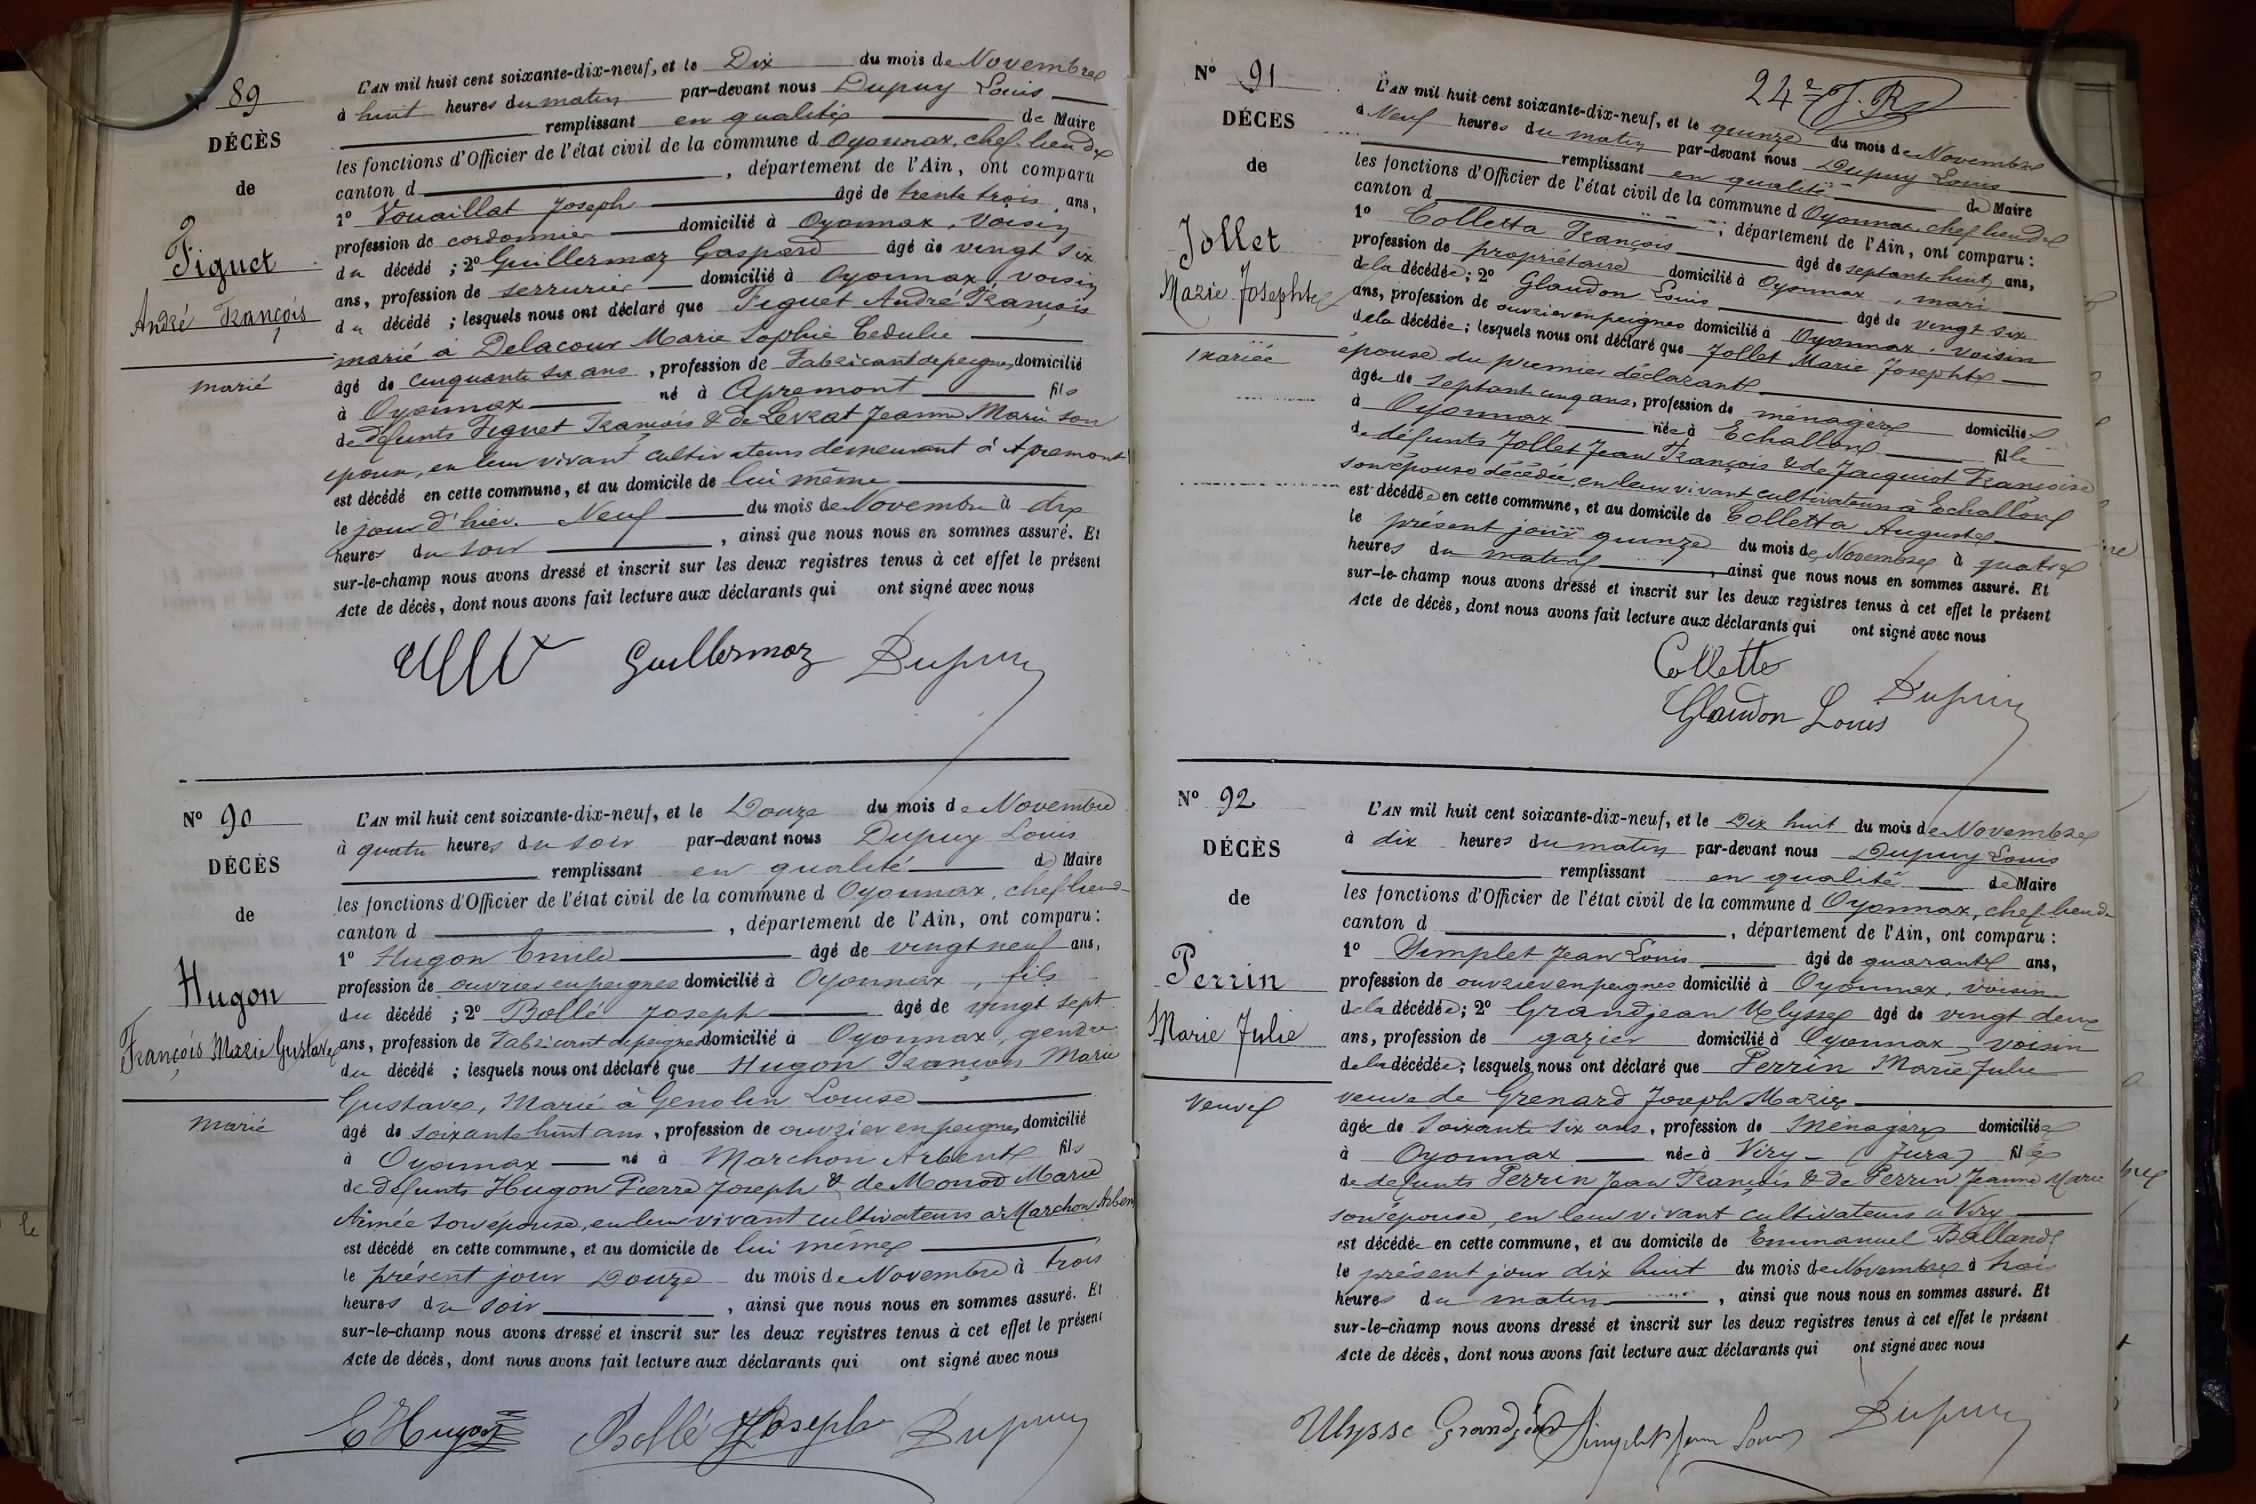 89
DÉCÈS
de
Figuet
André François
marié
L'AN mil huit cent soixante-dix-neuf, et le Dix du mois de Novembre
à huit heures du matin par-devant nous Dupuy Louis
remplissant en qualité de Maire
les fonctions d'Officier de l'état civil de la commune d Oyonnax, chef-lieu de
canton d , département de l'Ain, ont comparu
1º Vouaillat Joseph âgé de trente trois ans,
profession de cordonnier domicilié à Oyonnax, voisin
du décédé ; 2º Guillermoz Gaspard âgé de vingt six
ans, profession de serrurier domicilié à Oyonnax, voisin
du décédé ; lesquels nous ont déclaré que Figuet André François
marié à Delacour Marie Sophie Cedulie
âgé de cinquante six ans, profession de Fabricant de peignes domicilié
à Oyonnax né à Apremont fils
de défunts Figuet François & de Levrat Jeanne Marie son
epouse, en leur vivant cultivateurs demeurant à Apremont
est décédé en cette commune, et au domicile de lui même
le jour d'hier Neuf du mois de Novembre à dix
heures du soir , ainsi que nous nous en sommes assuré. Et
sur-le-champ nous avons dressé et inscrit sur les deux registres tenus à cet effet le présent
Acte de décès, dont nous avons fait lecture aux déclarants qui ont signé avec nous
Guillermoz Dupuy
Nº 90
DÉCÈS
de
Hugon
François Marie Gustave
marié
L'AN mil huit cent soixante-dix-neuf, et le Douze du mois de Novembre
à quatre heures du soir par-devant nous Dupuy Louis
remplissant en qualité de Maire
les fonctions d'Officier de l'état civil de la commune d Oyonnax, chef-lieu-
canton d , département de l'Ain, ont comparu :
1º Hugon Emile âgé de vingt neuf ans,
profession de ouvrier en peignes domicilié à Oyonnax, fils
du décédé ; 2º Bollé Joseph âgé de vingt sept
ans, profession de Fabricant de peignes domicilié à Oyonnax, gendre
du décédé ; lesquels nous ont déclaré que Hugon François Marie
Gustave, Marié à Genolin Louise
âgé de soixante huit ans, profession de ouvrier en peignes domicilié
à Oyonnax né à Marchon Arbent fils
de défunts Hugon Pierre Joseph & de Monod Marie
Aimée son épouse, en leur vivant cultivateurs à Marchon Arbent
est décédé en cette commune, et au domicile de lui même
le présent jour Douze du mois de Novembre à trois
heures du soir , ainsi que nous nous en sommes assuré. Et
sur-le-champ nous avons dressé et inscrit sur les deux registres tenus à cet effet le présent
Acte de décès, dont nous avons fait lecture aux déclarants qui ont signé avec nous
E Hugon Bollé Joseph Dupuy
24 J. R
Nº 91
DÉCÈS
de
Jollet
Marie Josephte
Mariée
L'AN mil huit cent soixante-dix-neuf, et le quinze du mois de Novembre
à Neuf heures du matin par-devant nous Dupuy Louis
remplissant en qualité de Maire
les fonctions d'Officier de l'état civil de la commune d Oyonnax, chef lieu de
canton d , département de l'Ain, ont comparu :
1º Colletta François âgé de septante huit ans,
profession de propriétaire domicilié à Oyonnax, mari
de la décédée ; 2º Glaudon Louis âgé de vingt six
ans, profession de ouvrier en peignes domicilié à Oyonnax, voisin
de la décédée ; lesquels nous ont déclaré que Jollet Marie Josephte
épouse du premier déclarant
âgée de septante cinq ans, profession de ménagère domiciliée
à Oyonnax née à Echallon fille
de défunts Jollet Jean François & de Jacquiot Françoise
son épouse décédée, en leur vivant cultivateurs à Echallon
est décédée en cette commune, et au domicile de Colletta Auguste
le présent jour quinze du mois de Novembre à quatre
heures du matin , ainsi que nous nous en sommes assuré. Et
sur-le-champ nous avons dressé et inscrit sur les deux registres tenus à cet effet le présent
Acte de décès, dont nous avons fait lecture aux déclarants qui ont signé avec nous
Colletta
Glaudon Louis Dupuy
Nº 92
DÉCÈS
de
Perrin
Marie Julie
Veuve
L'AN mil huit cent soixante-dix-neuf, et le Dix huit du mois de Novembre
à dix heures du matin par-devant nous Dupuy Louis
remplissant en qualité de Maire
les fonctions d'Officier de l'état civil de la commune d Oyonnax, chef-lieu de
canton d , département de l'Ain, ont comparu :
1º Simplet Jean Louis âgé de quarante ans,
profession de ouvrier en peignes domicilié à Oyonnax, voisin
de la décédée ; 2º Grandjean Ulysse âgé de vingt deux
ans, profession de gazier domicilié à Oyonnax, voisin
de la décédée ; lesquels nous ont déclaré que Perrin Marie Julie
veuve de Grenard Joseph Marie
âgée de soixante six ans, profession de Ménagère domiciliée
à Oyonnax née à Viry - (Jura) fille
de défunts Perrin Jean François & de Perrin Jeanne Marie
son épouse, en leur vivant cultivateurs à Viry
est décédée en cette commune, et au domicile de Emmanuel Balland
le présent jour dix huit du mois de Novembre à trois
heures du matin , ainsi que nous nous en sommes assuré. Et
sur-le-champ nous avons dressé et inscrit sur les deux registres tenus à cet effet le présent
Acte de décès, dont nous avons fait lecture aux déclarants qui ont signé avec nous
Ulysse Grandjean Simplet Jean Louis Dupuy